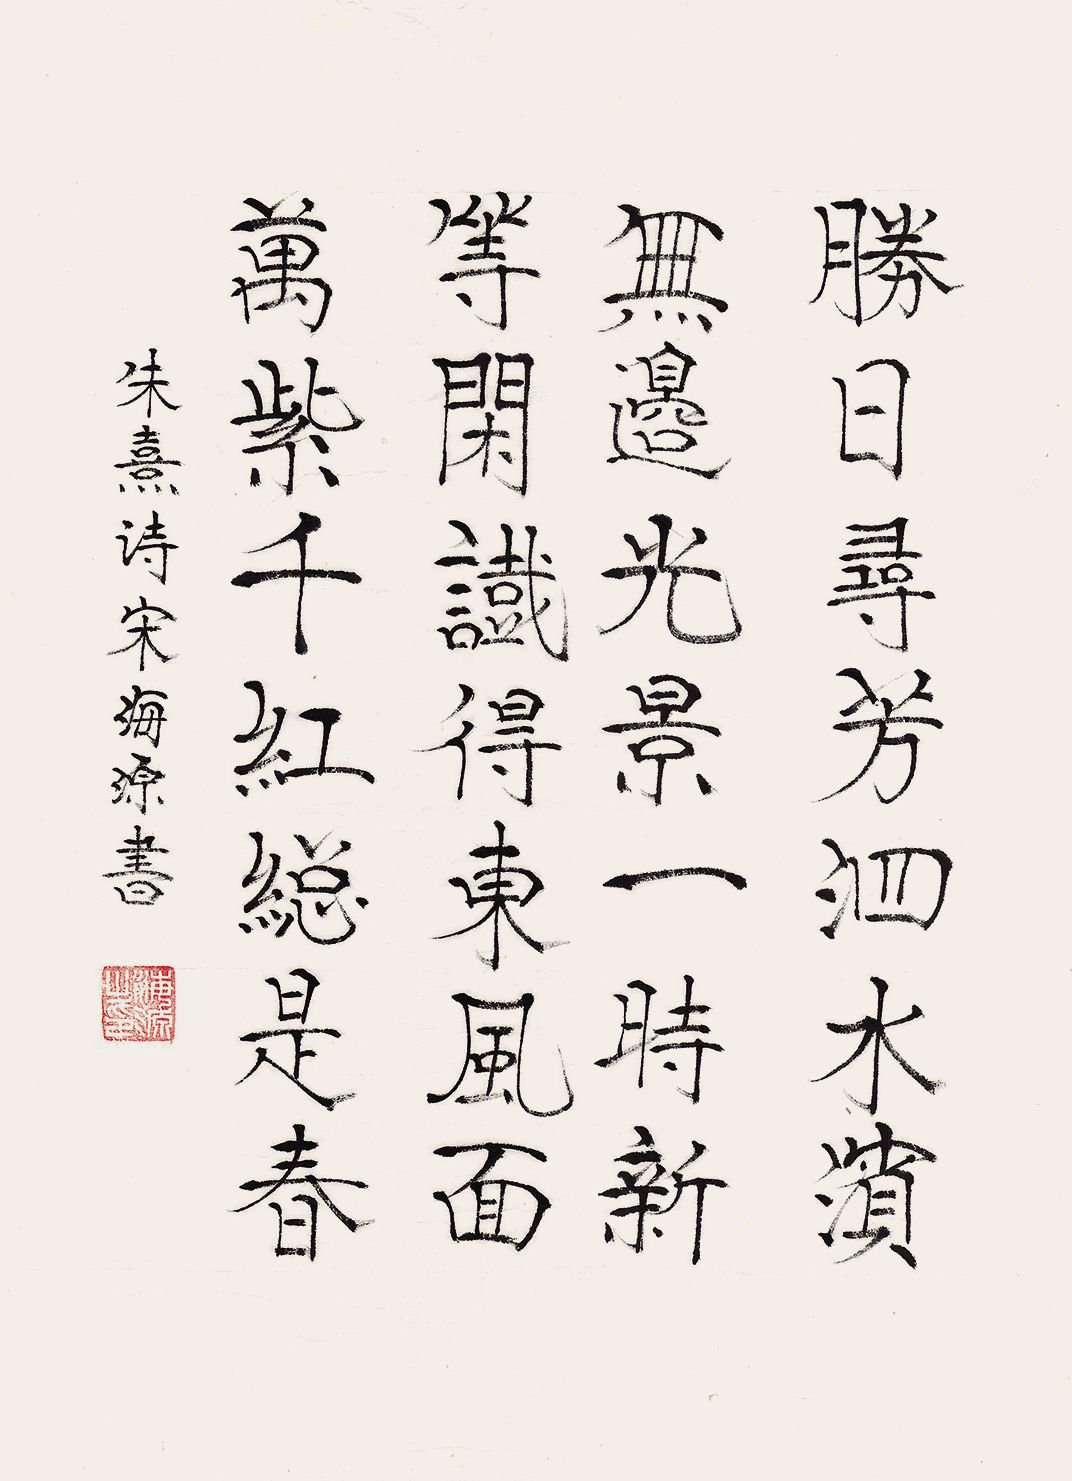 勝日尋芳泗水濱
無邊光景一時新
等閑識得東風面
萬紫千紅総是春
朱熹诗宋海源書